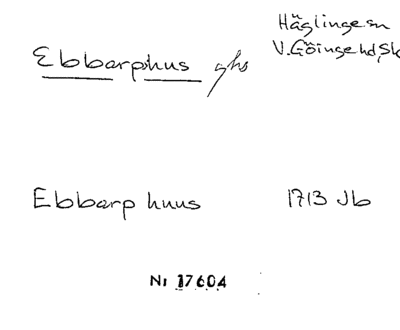 Häglinge sn
Ebbarphus ghs V.Göinge hd, Sk
Ebbarp huus 1713 Jb
Nr 17604